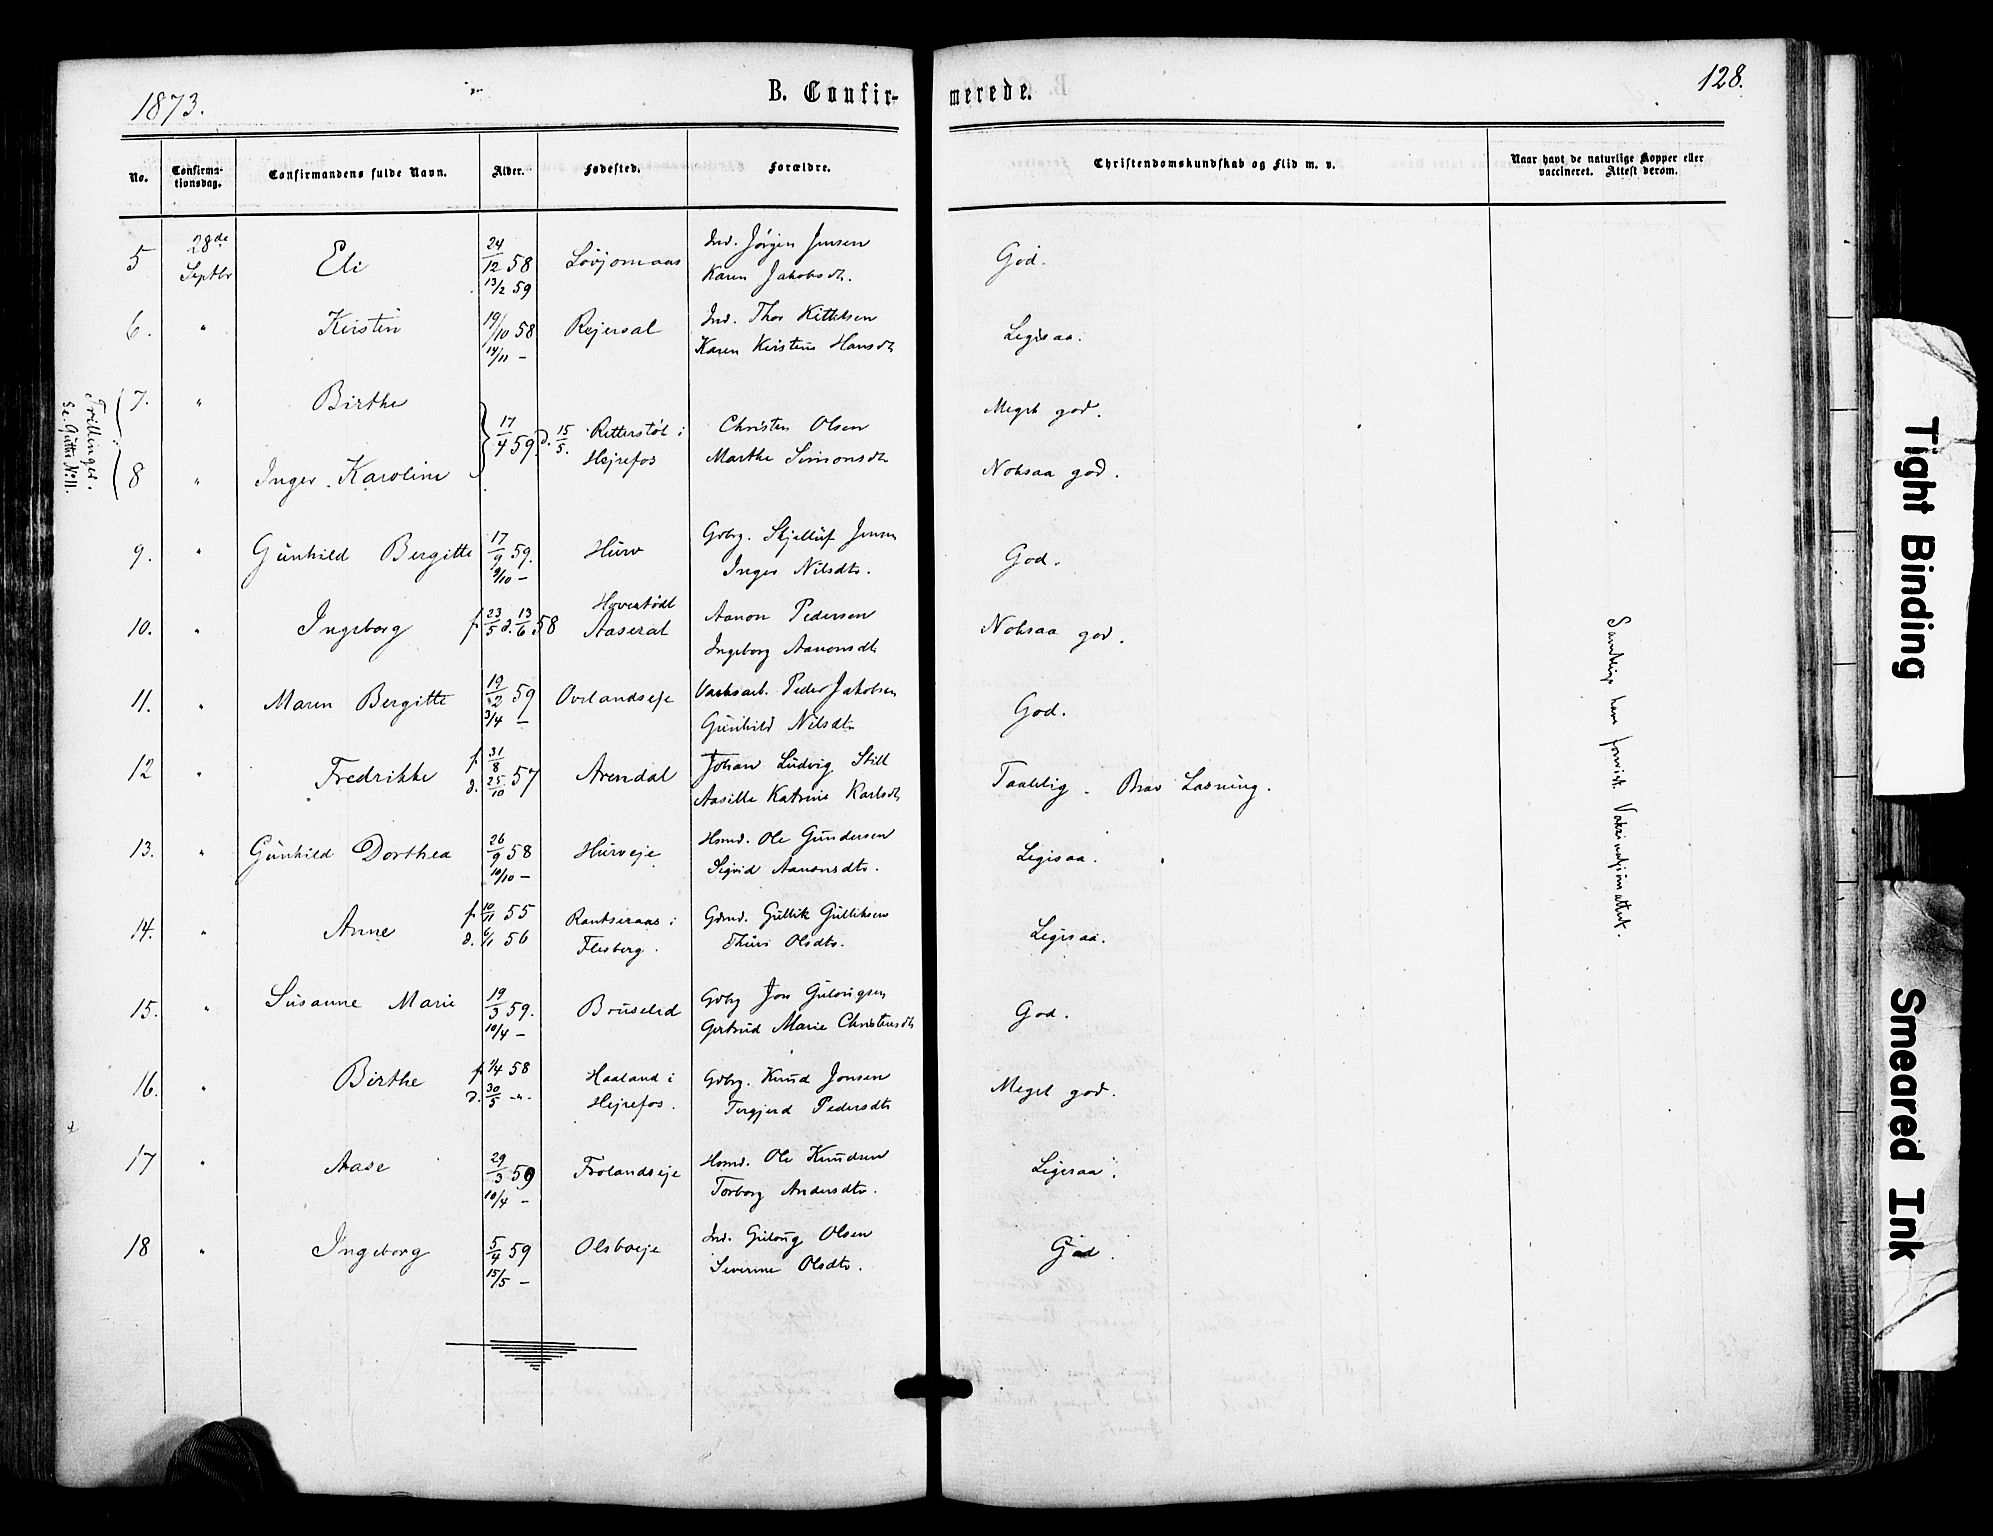 1873.
B. Confir-
merede.
128.
No.
Confirma-
tionsdag.
Confirmandens fulde Navn.
Alder.
Fødested.
Forældre.
Christendomskundskab og Flid m. v.
Naar havt de naturlige Kopper eller
vaccineret. Attest derom.
5 28de Septbr Eli 24/12 58 13/2 59 Lovjomaas
Ind. Jørgen Jensen
Karen Jakobsdt.
God.
6. " Kirstin 19/10 58 14/11 - Rejersal
Ind. Thor Kittilsen
Karen Kirstine Hansdt
Ligesaa.
Trillinger.
Se. Gutter N. 11.
7. " Birthe
17/4 59. d. 15/5. Ritterstøl i
Hejrefos
Christen Olsen
Marthe Simonsdt
Meget god.
8 " Inger Karoline
Noksaa god.
9. " Gunhild Bergitte 17/9 59. 9/10 - Hurv
Gdbrg. Skjelluf Jensen
Inger Nilsdtr.
God.
10. " Ingeborg f. 23/5 d. 13/6 58 Hovestødt
Aaseral
Aanon Pedersen
Ingeborg Aanonsdt
Noksaa god.
11. " Maren Bergitte 19/2 59 3/4 - Ovelandseje
Værksarb. Peder Jakobsen
Gunhild Nilsdtr
God.
12 " Fredrikke f. 31/8 d. 25/10 57 Arendal
Johan Ludvig Still
Aasille Katrine Karlsdt
Taalelig. Brav Læsning.
13. " Gunhild Dorthea 26/9 58 10/10 - Hurveje
Hsmd. Ole Gundersen
Sigrid Aanonsdtr.
Ligesaa.
14. " Anne f. 10/11 55 d. 6/1 56 i
Flesberg.
Gdmd. Gullik Gulliksen
Thuri Olsdtr.
Ligesaa.
15. " Susanne Marie 19/3 59. 10/4 - Bruselid
Gdbrg Jon Gulougsen
Gertrud Marie Christensdt
God.
16. " Birthe f. 1/4 58 d. 30/5 -"- Haaland i
Hejrefos.
Gdbrg. Knud Jonsen
Tergjerd Pedersdtr
Meget god.
17 " Aase 29/3 59 10/4 - Frolandseje
Hsmd. Ole Knudsen
Torborg Andersdtr.
Ligesaa.
18 " Ingeborg 5/4 59 15/5 - Olsboeje
Ind. Guloug Olsen
Severine Olsdtr.
God.
Samtlige have forevist Vakcinationsattest.
Tight Binding
Smeared Ink